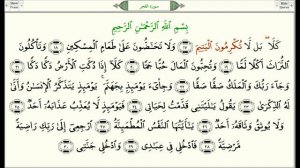 سورة الفجر
بِسْمِ اللَّهِ الرَّحْمَٰنِ الرَّحِيمِ
كَلَّا ۖ بَل لَّا تُكْرِمُونَ الْيَتِيمَ ﴿١٧﴾ وَلَا تَحَاضُّونَ عَلَىٰ طَعَامِ الْمِسْكِينِ ﴿١٨﴾ وَتَأْكُلُونَ
التُّرَاثَ أَكْلًا لَّمًّا ﴿١٩﴾ وَتُحِبُّونَ الْمَالَ حُبًّا جَمًّا ﴿٢٠﴾ كَلَّا إِذَا دُكَّتِ الْأَرْضُ دَكًّا دَكًّا ﴿٢١﴾
وَجَاءَ رَبُّكَ وَالْمَلَكُ صَفًّا صَفًّا ﴿٢٢﴾ وَجِيءَ يَوْمَئِذٍ بِجَهَنَّمَ ۚ يَوْمَئِذٍ يَتَذَكَّرُ الْإِنسَانُ وَأَنَّىٰ
لَهُ الذِّكْرَىٰ ﴿٢٣﴾ يَقُولُ يَا لَيْتَنِي قَدَّمْتُ لِحَيَاتِي ﴿٢٤﴾ فَيَوْمَئِذٍ لَّا يُعَذِّبُ عَذَابَهُ أَحَدٌ ﴿٢٥﴾
وَلَا يُوثِقُ وَثَاقَهُ أَحَدٌ ﴿٢٦﴾ يَا أَيَّتُهَا النَّفْسُ الْمُطْمَئِنَّةُ ﴿٢٧﴾ ارْجِعِي إِلَىٰ رَبِّكِ رَاضِيَةً
مَّرْضِيَّةً ﴿٢٨﴾ فَادْخُلِي فِي عِبَادِي ﴿٢٩﴾ وَادْخُلِي جَنَّتِي ﴿٣٠﴾